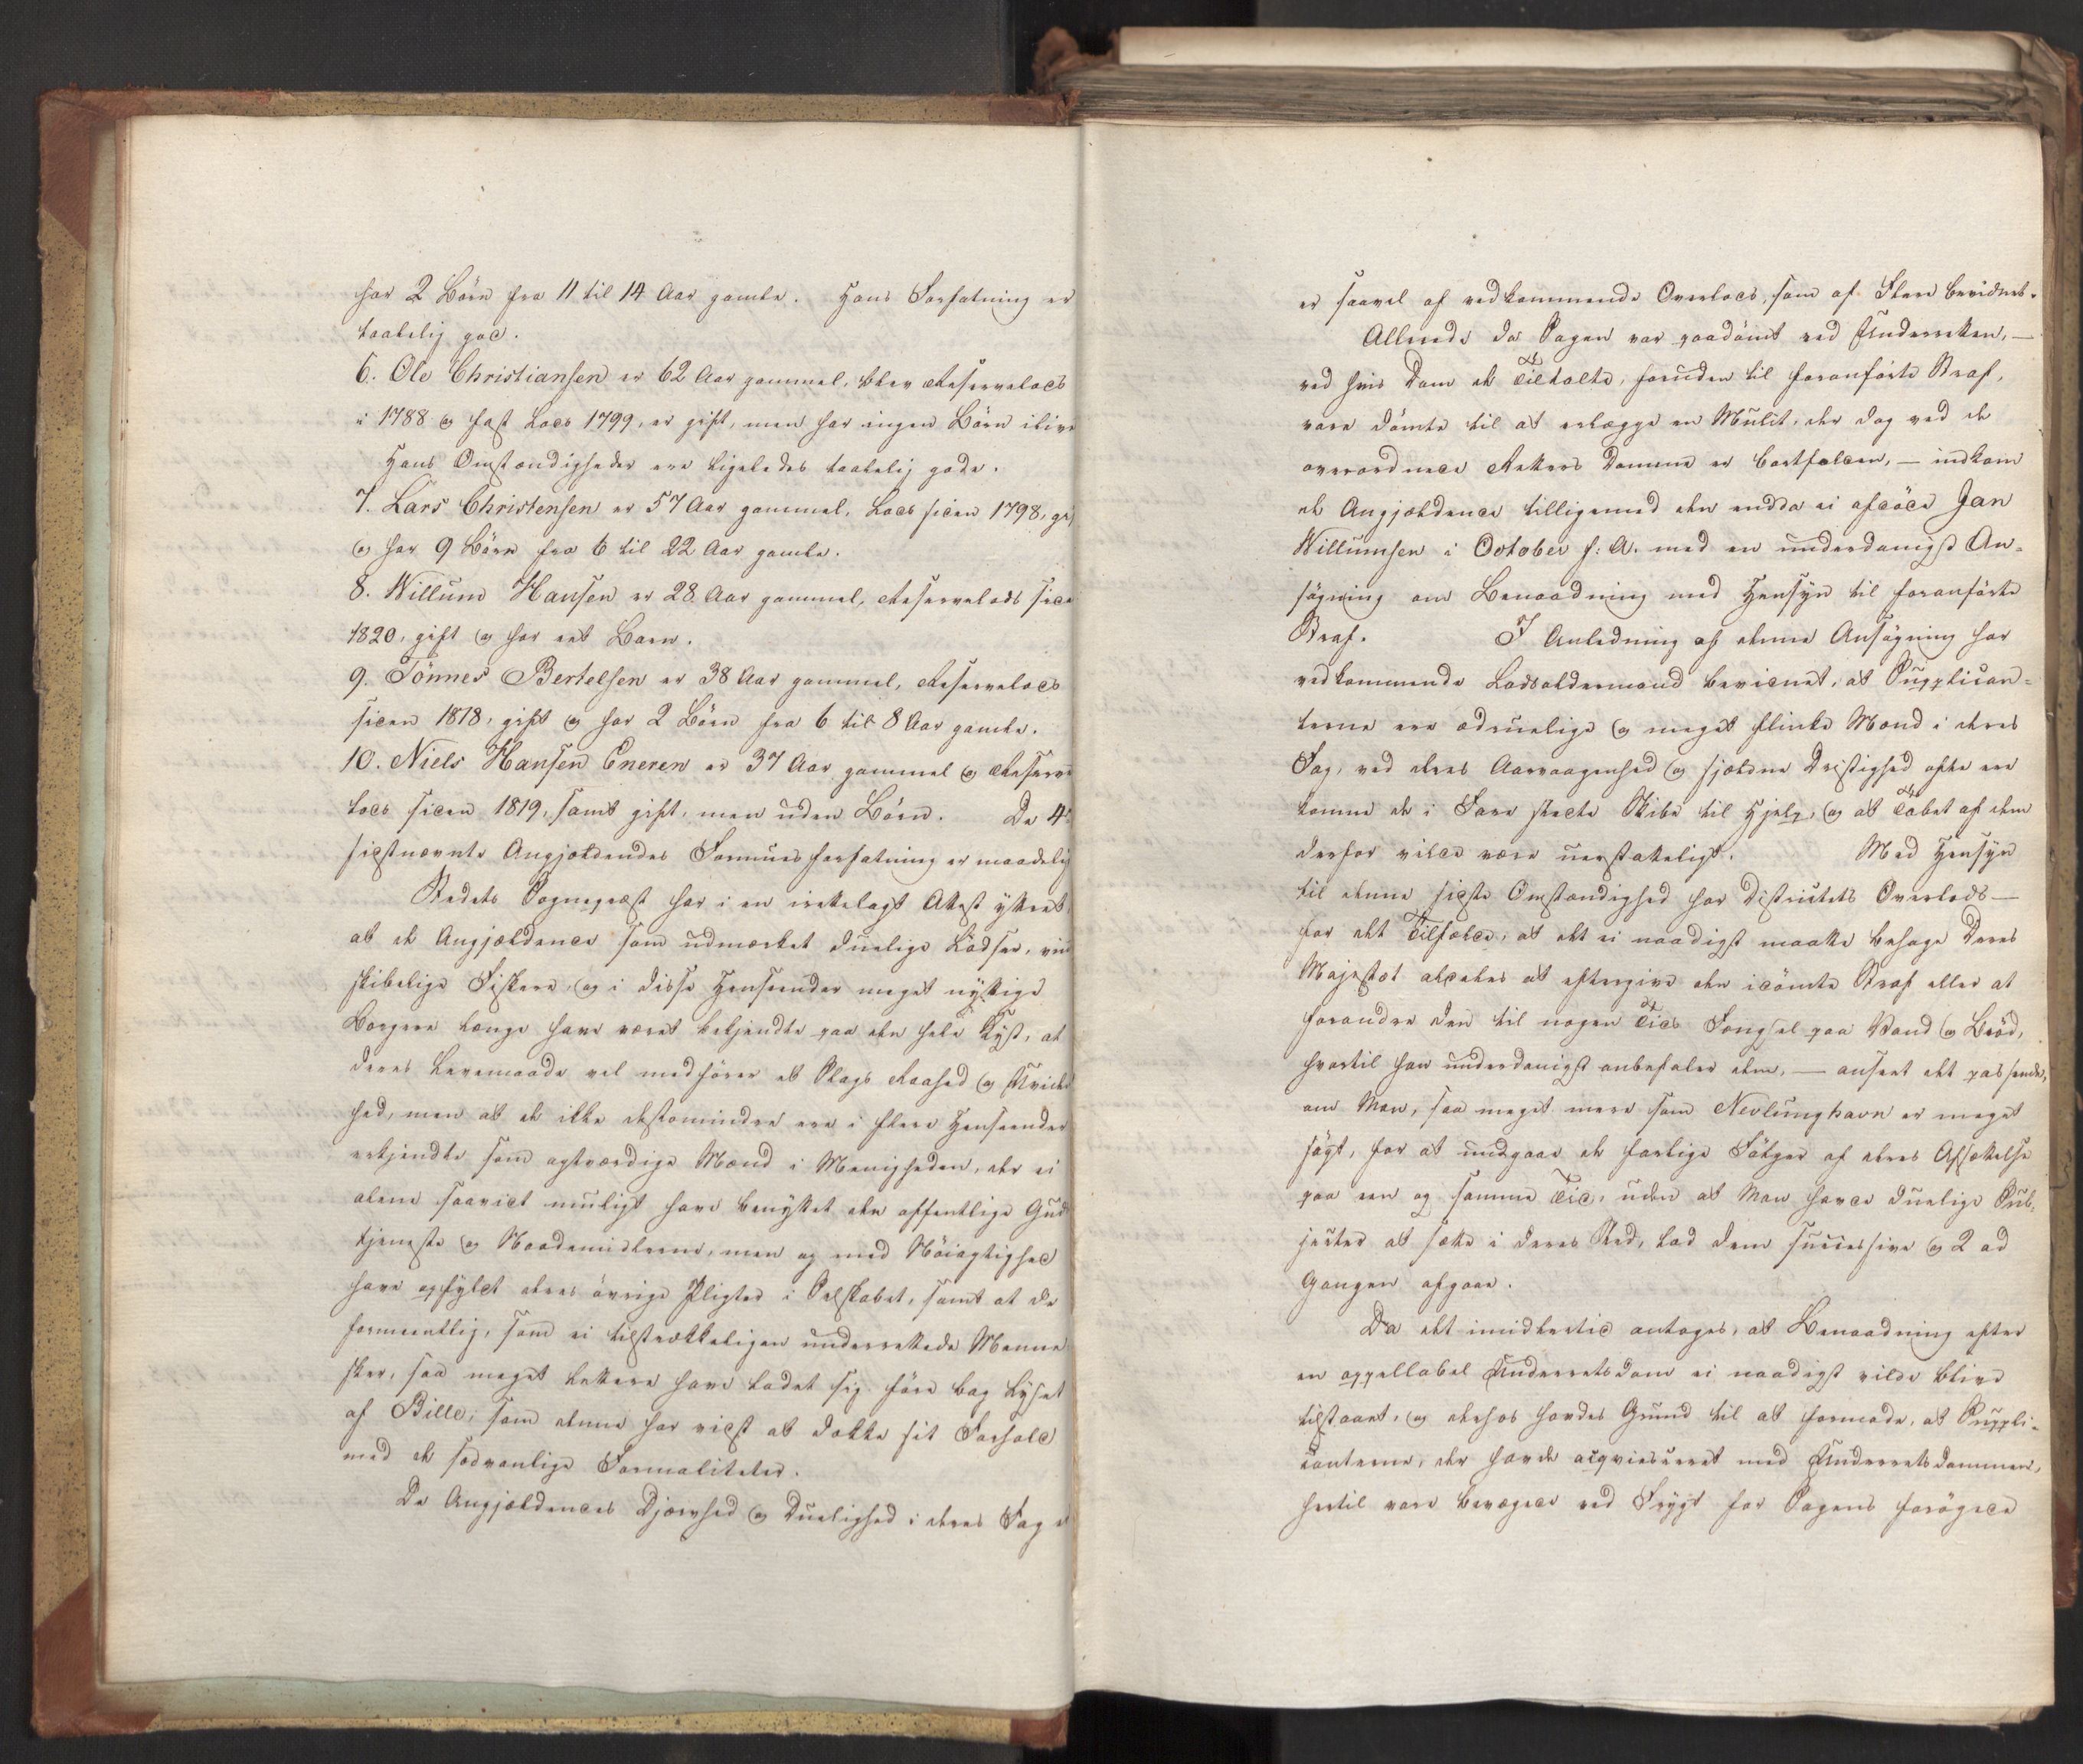 har 2 Börn fra 11 til 14 Aar gamle. Hans Forfatning er
taalelig god.
6. Ole Christiansen er 62 Aar gammel, blev Reservelods
i 1788 og fast Lods 1799, er gift, men har ingen Börn ilive
Hans Omstændigheder ere ligeledes taalelig gode.
7. Lars Christensen er 57 Aar gammel, Lods siden 1798, gi
og har 9 Börn fra 6 til 22 Aar gamle.
8. Willum Hansen er 28 Aar gammel, Reservelods side
1820, gift og har eet Barn.
9. Tönnes Bertelsen er 38 Aar gammel, Reservelods
siden 1818, gift og har 2 Börn fra 6 til 8 Aar gamle.
10. Niels Hansen Eneren er 37 Aar gammel og Reserve
lods siden 1819, samt gift, men uden Börn. De 4
sidstnævnte Angjældendes Formuesforfatning er maadelig
Stedets Sogneprest har i en irettelagt Attest yttret,
at de Angjældende som udmærket duelige Lodser, vin
skibelige Fiskere, og i disse Henseender meget nyttige
Borgere længe have været bekjendte paa den hele Kyst, at
deres Levemaade vel medförer et Slags Raahed og Uvider
hed, men at de ikke destomindre ere i flere Henseender
erkjendte som agtværdige Mænd i Menigheden, der ei
alene saavidt muligt have benyttet den offentlige Guds
tjeneste og Naademidlerne, men og med Nöiagtighed
have opfyldt deres övrige Pligter i Selskabet, samt at de
formeentlig, som ei tilstrækkeligen underrettede Menne
sker, saa meget lettere have ladet sig före bag Lyset
af Bille, som denne har vidst at dække sit Forhold
med de sædvanlige Formaliteter.
De Angjældendes Djærvhed og Duelighed i deres Fag
er saavel af vedkommende Overlods, som af Flere bevidnet.
Allerede da Sagen var paadömt ved Underretten, —
ved hvis Dom de Tiltalte, foruden til foranförte Straf,
vare dömte til at erlægge en Mulct, der dog ved de
overordnede Retters Domme er bortfalden, — indkom
de Angjældende tilligemed den endda ei afdöde Jan
Willumsen i October f: A. med en underdanigst An-
sögning om Benaadning med Hensyn til foranförte
Straf. I Anledning af denne Ansögning har
vedkommende Lodsoldermand bevidnet, at Supplican-
terne ere ædruelige og meget flinke Mænd i deres
Fag, ved deres Aarvaagenhed og sjeldne Dristighed ofte ere
komne de i Fare stedte Skibe til Hjelp, og at Tabet af dem
derfor vilde være uerstatteligt. Med Hensyn
til denne sidste Omstændighed har Districtets Overlods —
for det Tilfælde, at det ei naadigst maatte behage Deres
Majestæt aldeles at eftergive den idömte Straf eller at
forandre den til nogen Tids Fængsel paa Vand og Bröd,
hvortil han underdanigst anbefaler dem, — anseet det passende,
om Man, saa meget mere som Nevlunghavn er meget
sögt, for at undgaae de farlige Fölger af deres Afsættelse
paa een og samme Tid, uden at Man havde duelige Sub-
jecter at sætte i deres Sted, lod dem successive og 2 ad
Gangen afgaae.
Da det imidlertid antoges, at Benaadning efter
en appellabel Underretsdom ei naadigst vilde blive
tilstaaet, og derhos havdes Grund til at formode, at Suppli-
canterne, der havde acqviesceret med Underretsdommen,
hertil vare bevægede ved Frygt for Sagens forögede